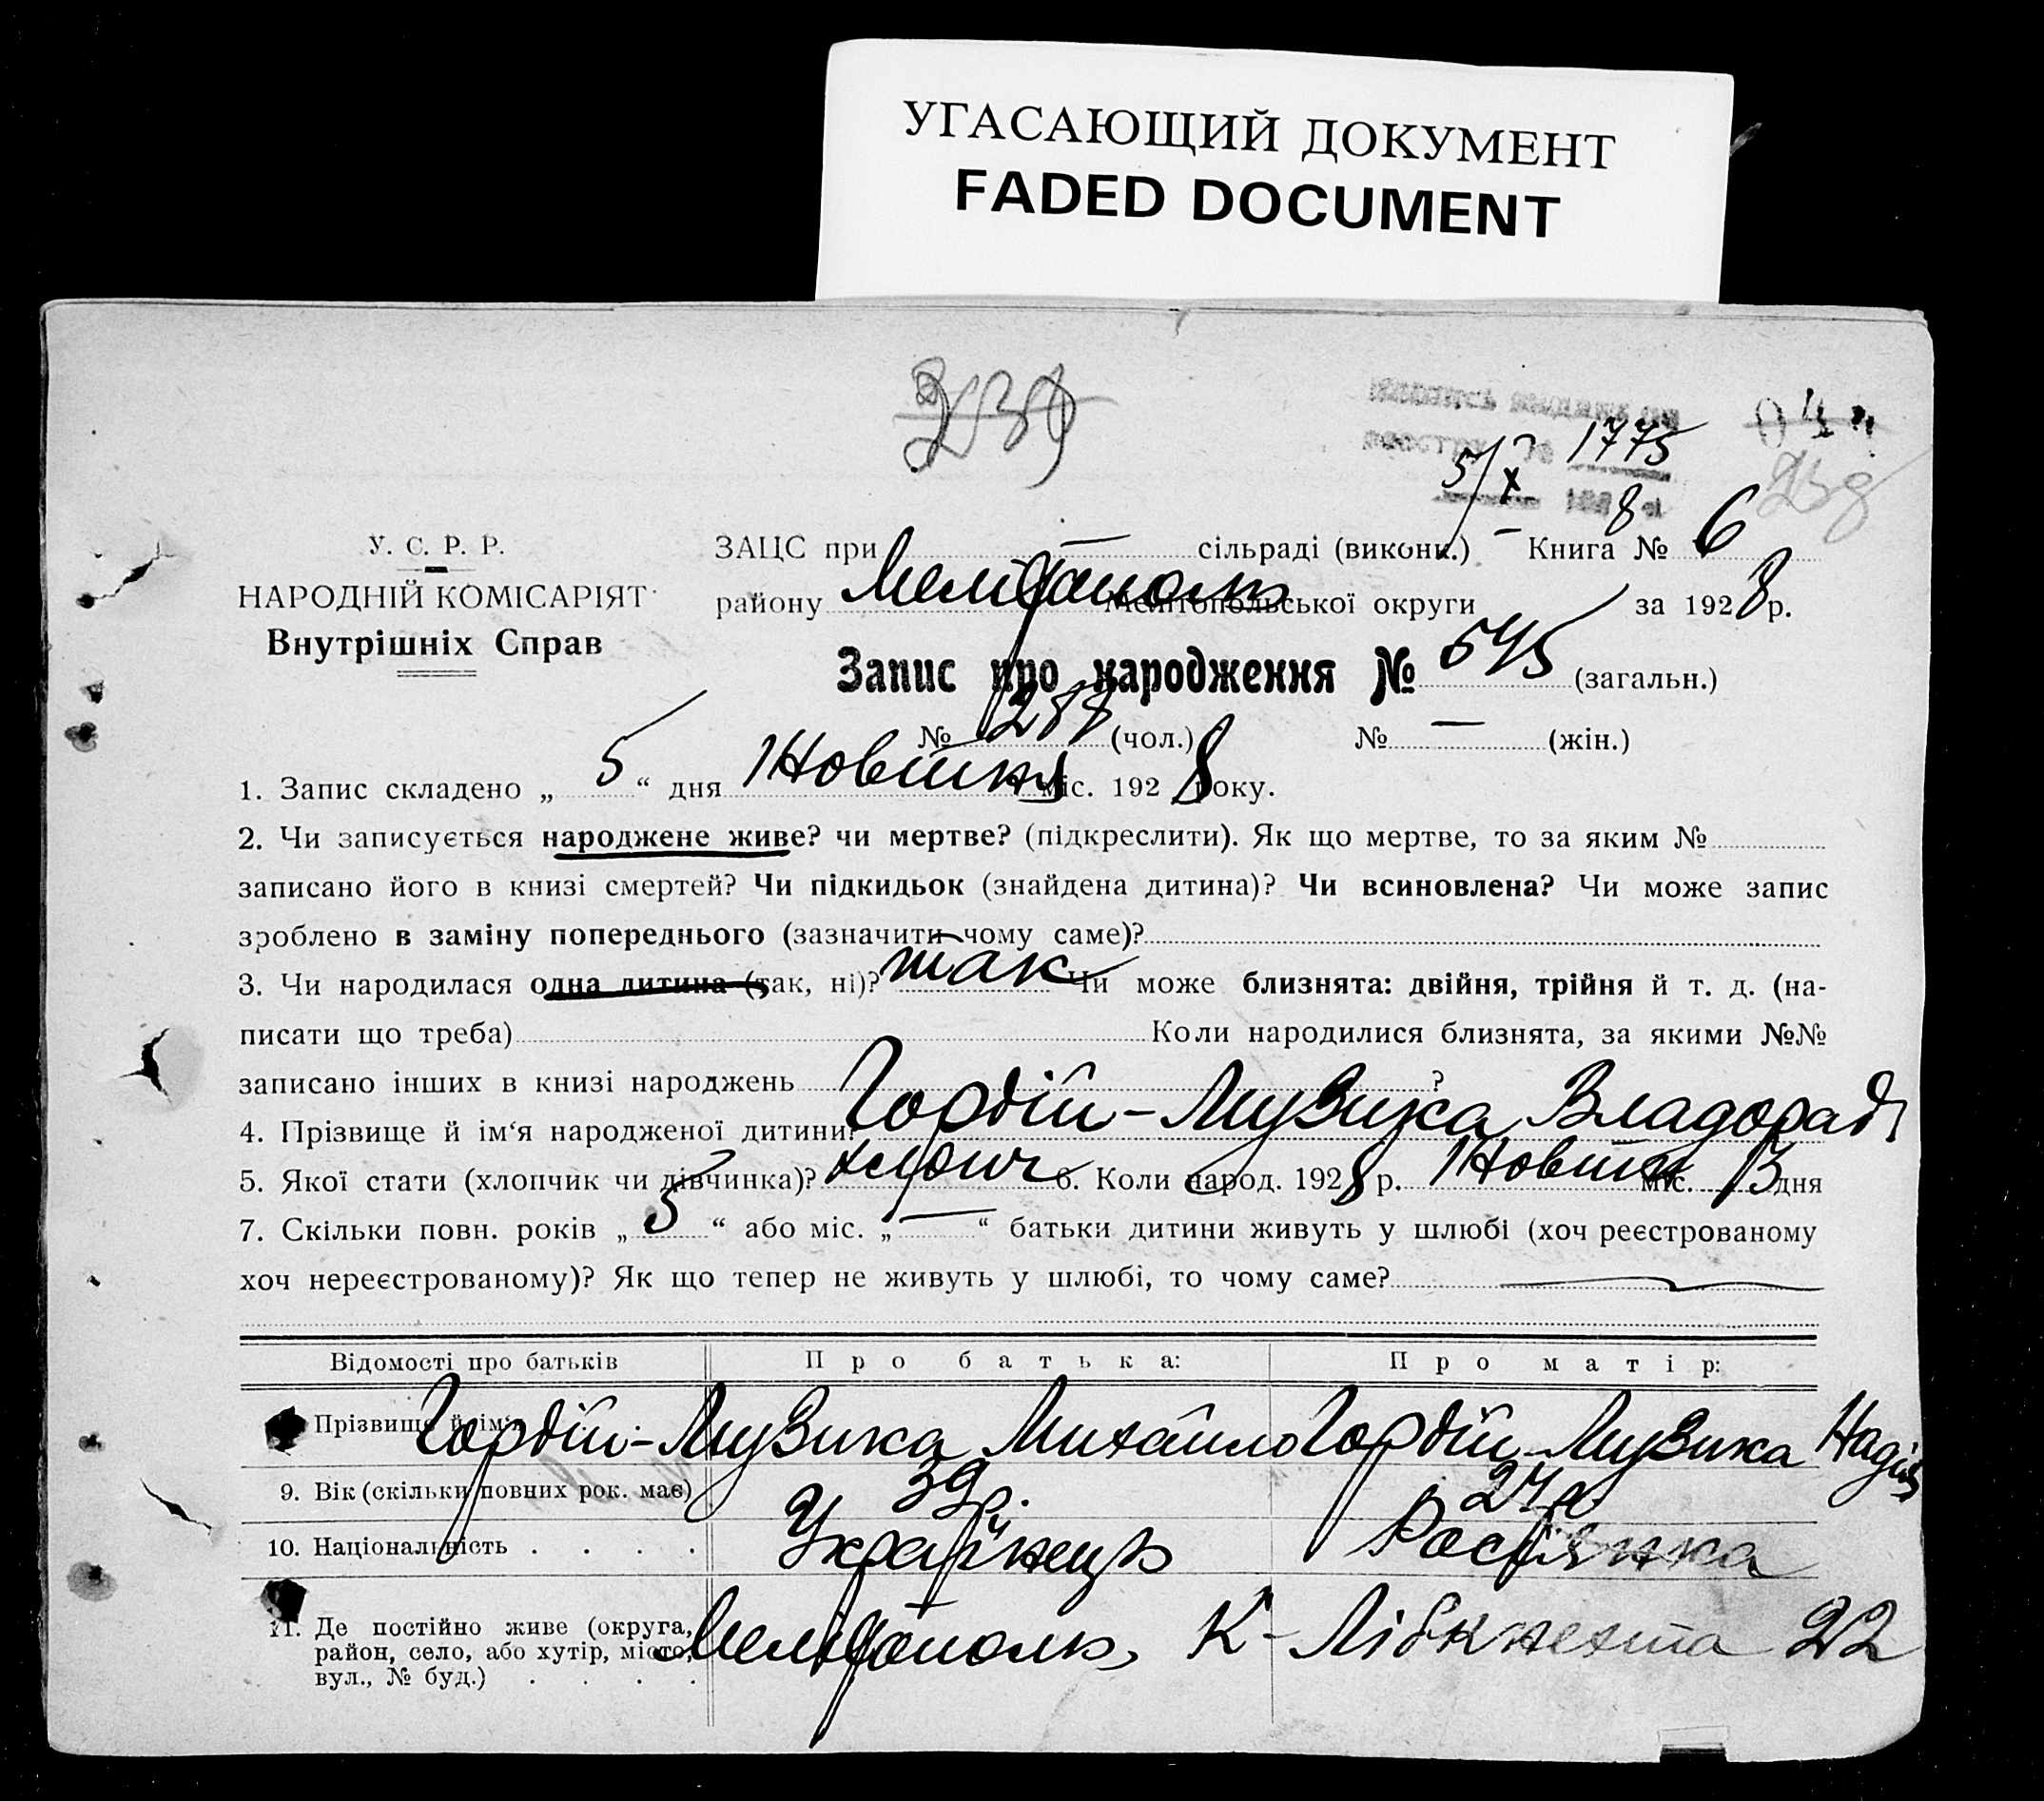 УГАСАЮЩИЙ ДОКУМЕНТ
FADED DOCUMENT
239
1775
5/X 8
238
У. С. Р. Р.
НАРОДНІЙ КОМІСАРІЯТ
Внутрішніх Справ
ЗАЦС при — сільраді (виконк.) Книга № 6
району Мелітополь Мелітопольської округи за 1928 р.
Запис про народження № 545 (загальн.)
№ 288 (чол.) № — (жін.)
1. Запис складено „ 5 “ дня Жовтня міс. 1928 року.
2. Чи записується народжене живе? чи мертве? (підкреслити). Як що мертве, то за яким №
записано його в книзі смертей? Чи підкидьок (знайдена дитина)? Чи всиновлена? Чи може запис
зроблено в заміну попереднього (зазначити чому саме)?
3. Чи народилася одна дитина (так, ні)? так Чи може близнята: двійня, трійня й т. д. (на-
писати що треба) Коли народилися близнята, за якими №№
записано інших в книзі народжень ?
4. Прізвище й ім‘я народженої дитини: Гордій-Музика
5. Якої стати (хлопчик чи дівчинка)? хлопч 6. Коли народ. 1928 р. Жовтн міс. дня
7. Скільки повн. років „ 5 “ або міс. „ — “ батьки дитини живуть у шлюбі (хоч реєстрованому
хоч нереєстрованому)? Як що тепер не живуть у шлюбі, то чому саме? —
Відомості про батьків Про батька: Про матір:
Прізвище й ім‘я Гордій-Музика Михайло Гордій-Музика Надія
9. Вік (скільки повних рок. має) 39 р. 24 р
10. Національність . . . . Українець Росіянка
11. Де постійно живе (округа,
район, село, або хутір, місто,
вул., № буд.) . . . . Мелітополь, К-Лібкнехта 22